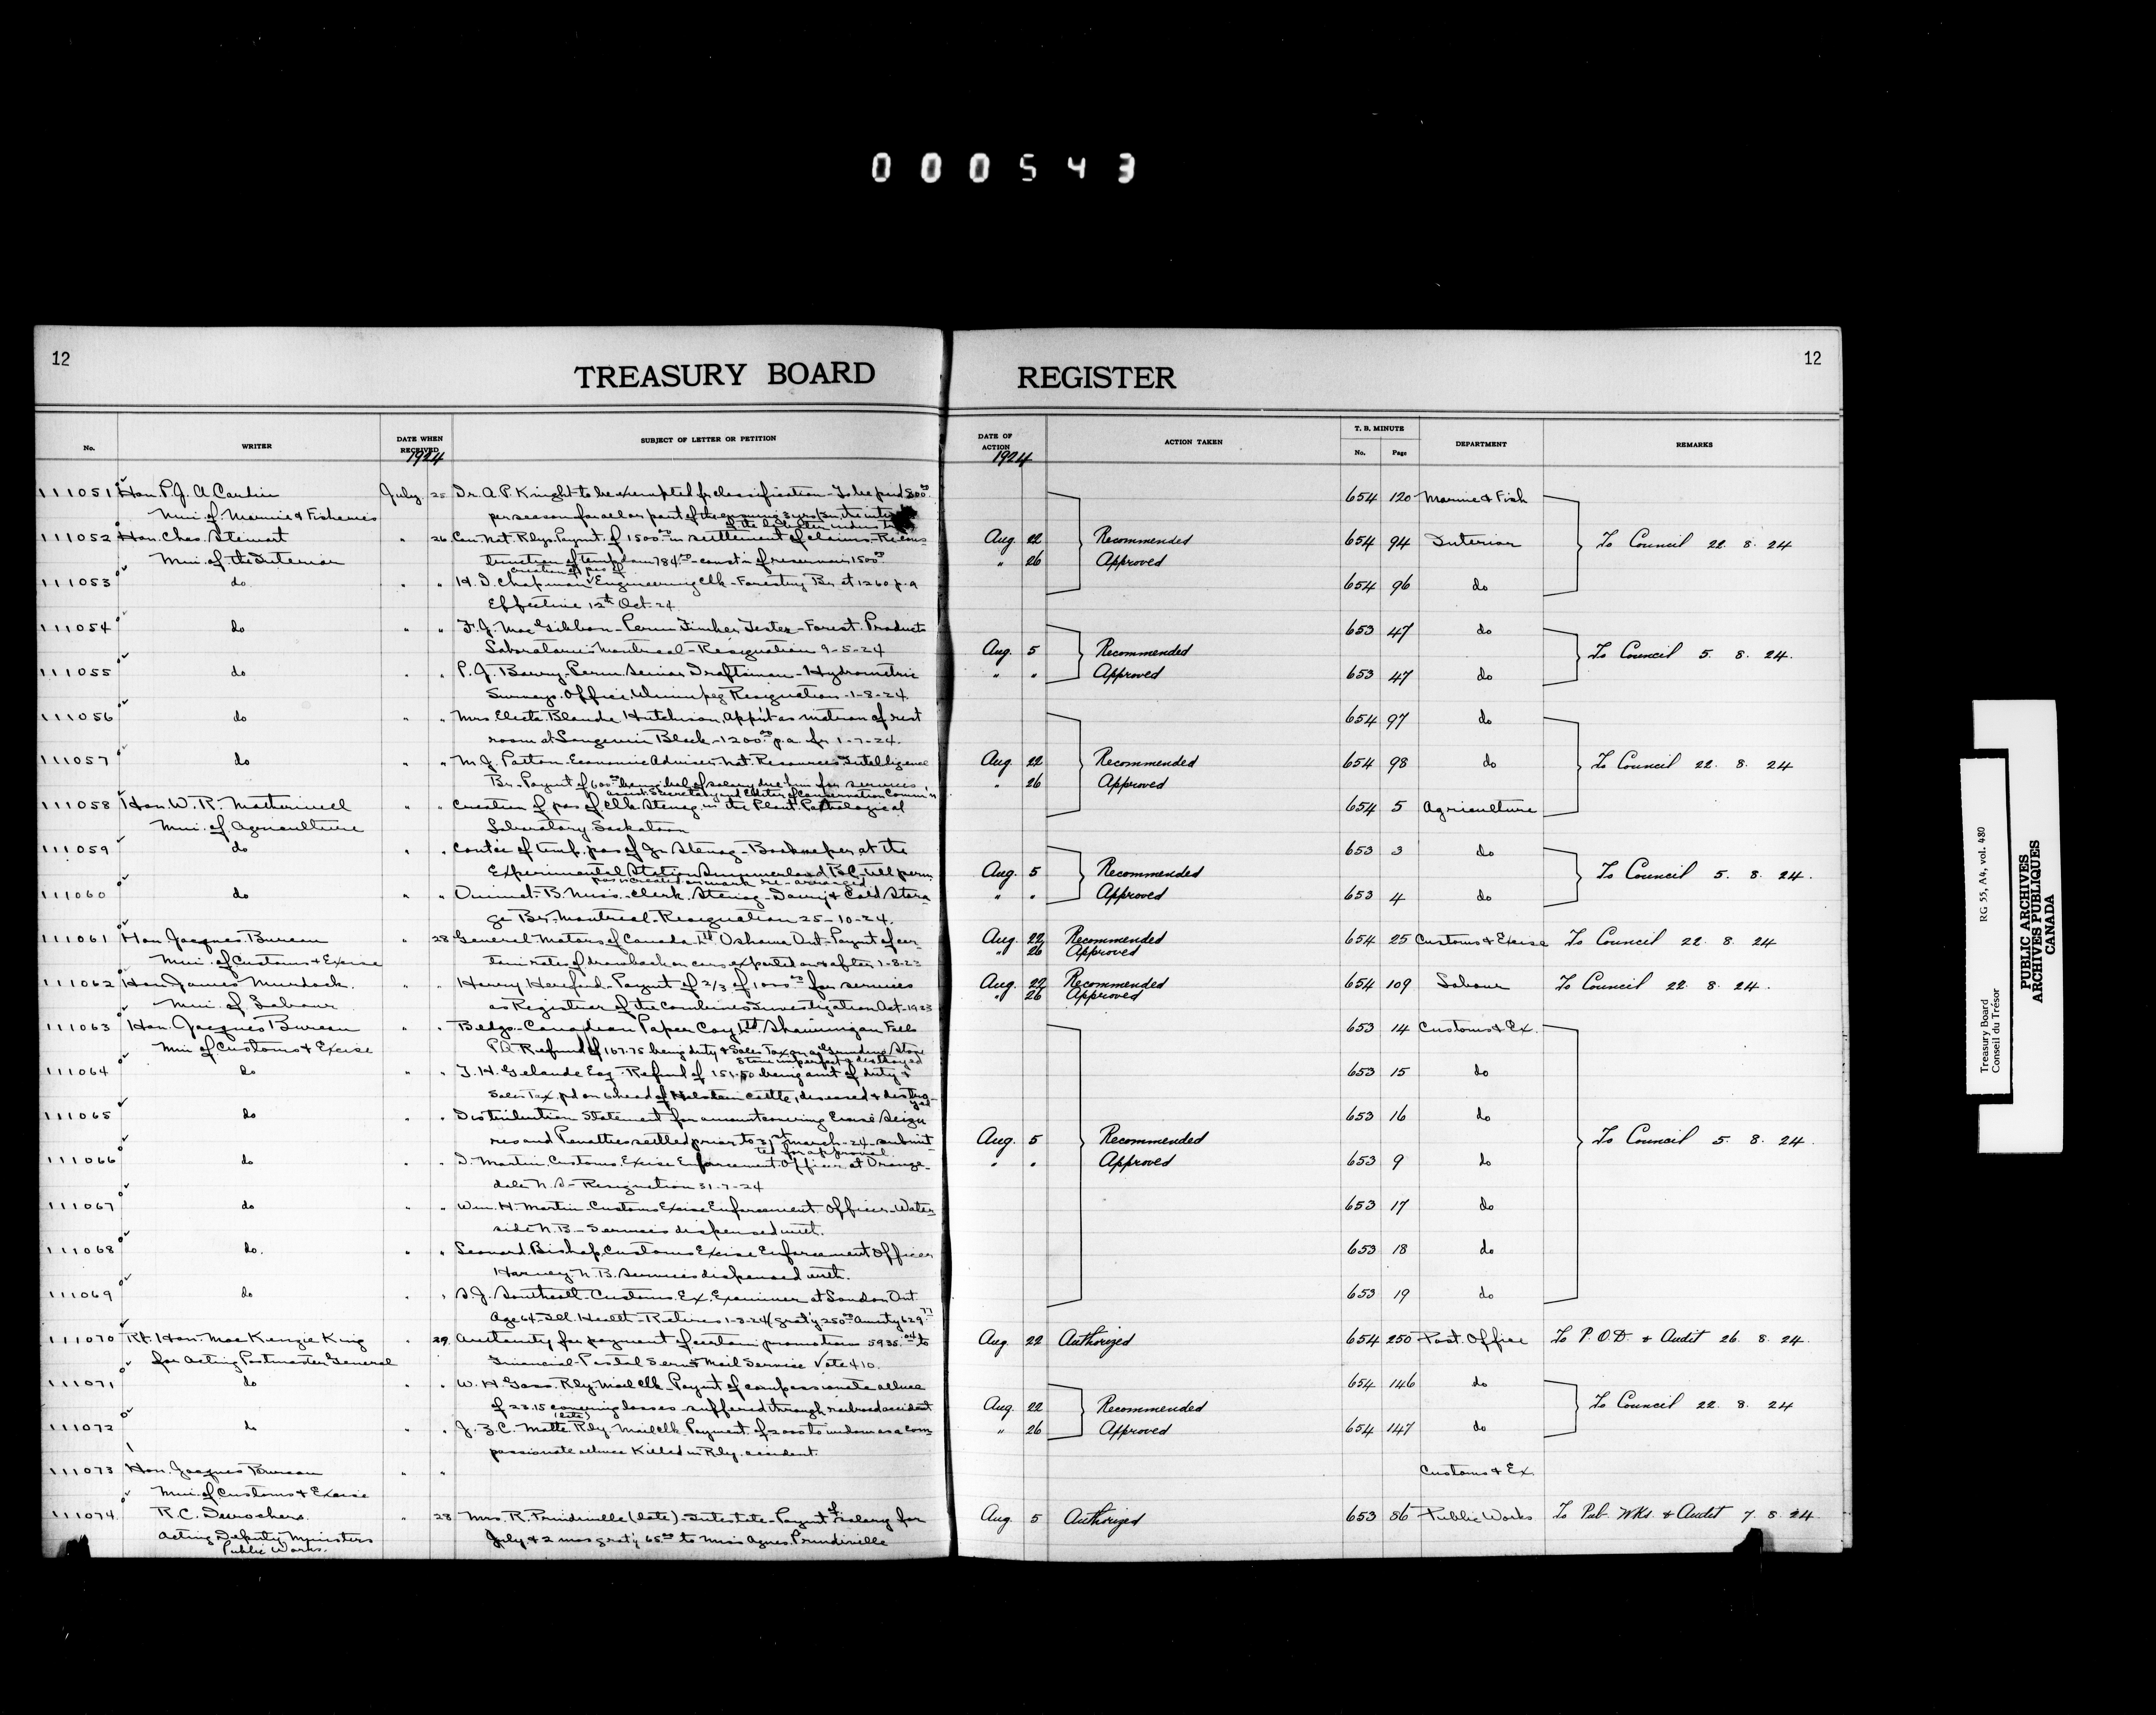 000543
12
TREASURY BOARD REGISTER
12
No.
WRITER
DATE WHEN RECEIVED
1924
SUBJECT OF LETTER OR PETITION
DATE OF ACTION
1924
ACTION TAKEN
T. B. MINUTE
No.
Page
DEPARTMENT
REMARKS
111051 Hon. P.J.A. Cardin July 25 Dr. A.P. Knight to be exempted fr classification - To be paid 800.00 654 120 Marine & Fish
Min. of Marine & Fisheries per season for all or part of the ensuing 3 yrs in the
of the lobster
111052 Hon. Chas. Stewart " 26 Can. Nat. Rlys. Paymt. of 1500.00 in settlement of claims - Recons- Aug 22 Recommended 654 94 Interior To Council 22. 8. 24
Min. of the Interior truction of temp dam 784.50 - const'n of reservoir 1500.00 " 26 Approved
creation of pos of
111053 do " " H.D. Chapman Engineering Clk - Forestry Br. at 1260 p.a 654 96 do
Effective 12th Oct. 24
111054 do " " F.J. MacGibbon - Perm Timber Tester - Forest Products 653 47 do
Laboratories Montreal - Resignation 9-5-24 Aug. 5 Recommended To Council 5. 8. 24.
111055 do " " P.J. Barry - Perm Senior Draftsman - Hydrometric " " Approved 653 47 do
Surveys Office, Winnipeg Resignation - 1-8-24
111056 do " " Mrs. Electa Blanche Hutchison. App't as matron of rest 654 97 do
room at Langevin Block - 1200.00 p.a. fr 1-7-24.
111057 do " " M.J. Patton - Economic Adviser Nat. Resources Intelligence Aug 22 Recommended 654 98 do To Council 22. 8. 24
Br. - Paymt of 600.00 being bal of salary due him for services " 26 Approved
Secretary and Editor of Conservation Comm'n
111058 Hon. W.R. Motherwell " " Creation of pos of Clk. Stenog in the Plant Pathological 654 5 Agriculture
Min. of Agriculture Laboratory Saskatoon
111059 do " " Contce of temp. pos of Jr. Stenog - Bookkeeper, at the 653 3 do
Experimental Station Summerland B.C. till perm Aug. 5 Recommended To Council 5. 8. 24.
pos is created or work re-arranged
111060 do " " Ouimet - B. Miss. - Clerk Stenog - Dairy & Cold Stora- " " Approved 653 4 do
ge Br. - Montreal - Resignation 25-10-24.
111061 Hon Jacques Bureau " 28 General Motors of Canada Ltd Oshawa Ont - Paymt of cer- Aug. 22 Recommended 654 25 Customs & Excise To Council 22. 8. 24
Min. of Customs & Excise tain rates of drawback on cars exported on & after 1-8-23 " 26 Approved
111062 Hon James Murdock " " Henry Hereford - Paymt of 2/3 of 1000.00 for services Aug. 22 Recommended 654 109 Labour To Council 22. 8. 24.
Min. of Labour as Registrar of the Combines Investigation Act - 1923 " 26 Approved
111063 Hon. Jacques Bureau " " Belgo-Canadian Paper Coy Ltd. Shawinigan Falls 653 14 Customs & Ex.
Min of Customs & Excise P.Q. Refund of 167.75 being duty & Sales Tax on a Grinding Stone
Stone imperfect & destroyed
111064 do " " T.H. Gelande Esq - Refund of 151.50 being amt of duty & 653 15 do
Sales Tax, pd on 6 head of Holstein cattle, diseased & destroy-
yed
111065 do " " Distribution Statement for amount covering Excise Seizu 653 16 do
res and Penalties settled prior to 31st March - 24 - submit Aug. 5 Recommended To Council 5. 8. 24.
ted for approval
111066 do " " D. Martin Customs Excise Enforcement Officer at Orange- " " Approved 653 9 do
dale N.S. - Resignation 31-7-24
111067 do " " Wm. H. Martin Customs Excise Enforcement Officer - Water- 653 17 do
side N.B. - Services dispensed with.
111068 do. " " Leonard Bishop Customs Excise Enforcement Officer, 653 18 do
Harvey N.B. Services dispensed with.
111069 do " " S.J. Southcott - Customs Ex. Examiner at London Ont. 653 19 do
Age 64 - Ill Health - Retires 1-8-24 (grat'y 250.00 Annuity 629.77
111070 Rt. Hon. MacKenzie King " 29 Authority for payment of certain promotions 5935.04 to Aug 22 Authorized 654 250 Post. Office To P.O.D. & Audit 26. 8. 24.
for Acting Postmaster General Financial - Postal Serv. & Mail Service Vote 410.
111071 do " " W.H. Goss. Rly Mail Clk - Paymt of compassionate allnce 654 146 do
of 23.15 covering losses suffered through railroad accident Aug 22 Recommended To Council 22. 8. 24
(late)
111072 do " " J.Z.C. Matte Rly Mail Clk, Payment of 2000 to widow as a com " 26 Approved 654 147 do
passionate allnce Killed in Rly. accident.
111073 Hon. Jacques Bureau " " Customs & Ex.
Min. of Customs & Excise
111074 R.C. Desrochers " 28 Mrs. R. Prindiville (late) - Intestate - Paymt of salary for Aug 5 Authorized 653 86 Public Works To Pub. Wks. & Audit 7. 8. 24
Acting Deputy Ministers July & 2 mos grat'y 65.00 to Miss Agnes Prindiville
Public Works.
Treasury Board RG 55, A4, vol. 480
Conseil du Trésor
PUBLIC ARCHIVES
ARCHIVES PUBLIQUES
CANADA